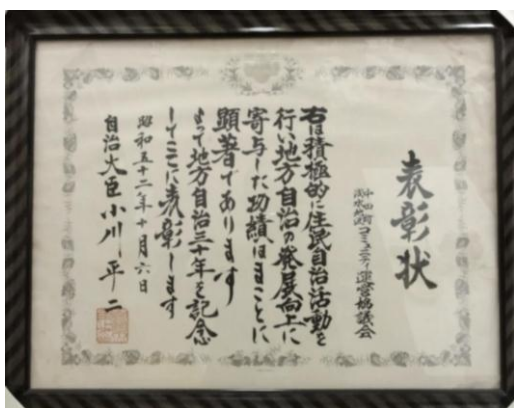 表彰状
コミュニティ運営協議会
右は積極的に住民自治活動を
行い地方自治の発展向上に
寄与した功績はまことに
顕著であります
よって地方自治三十年を記念
してここに表彰します
昭和五十二年十月六日
自治大臣小川平二